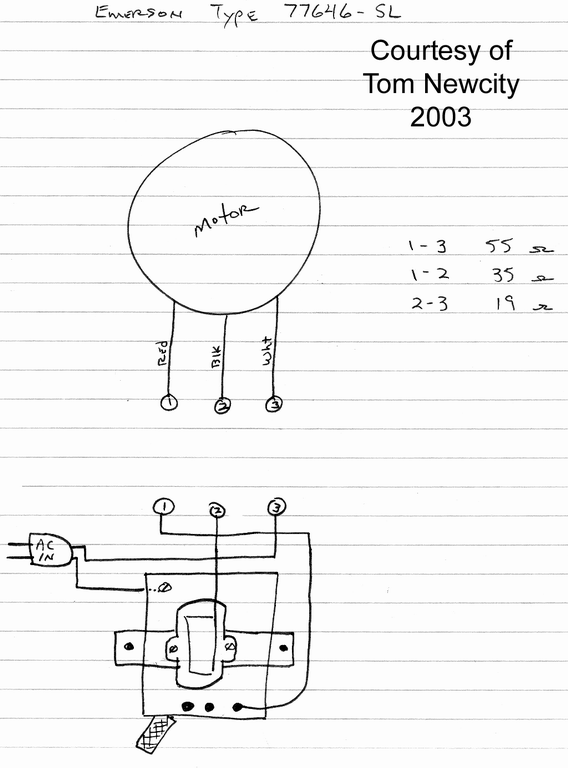 EMERSON TYPE 77646-SL
Courtesy of
Tom Newcity
2003
Motor
1-3 55 Ω
1-2 35 Ω
2-3 19 Ω
Red Blk Wht
1 2 3
1 2 3
AC
IN